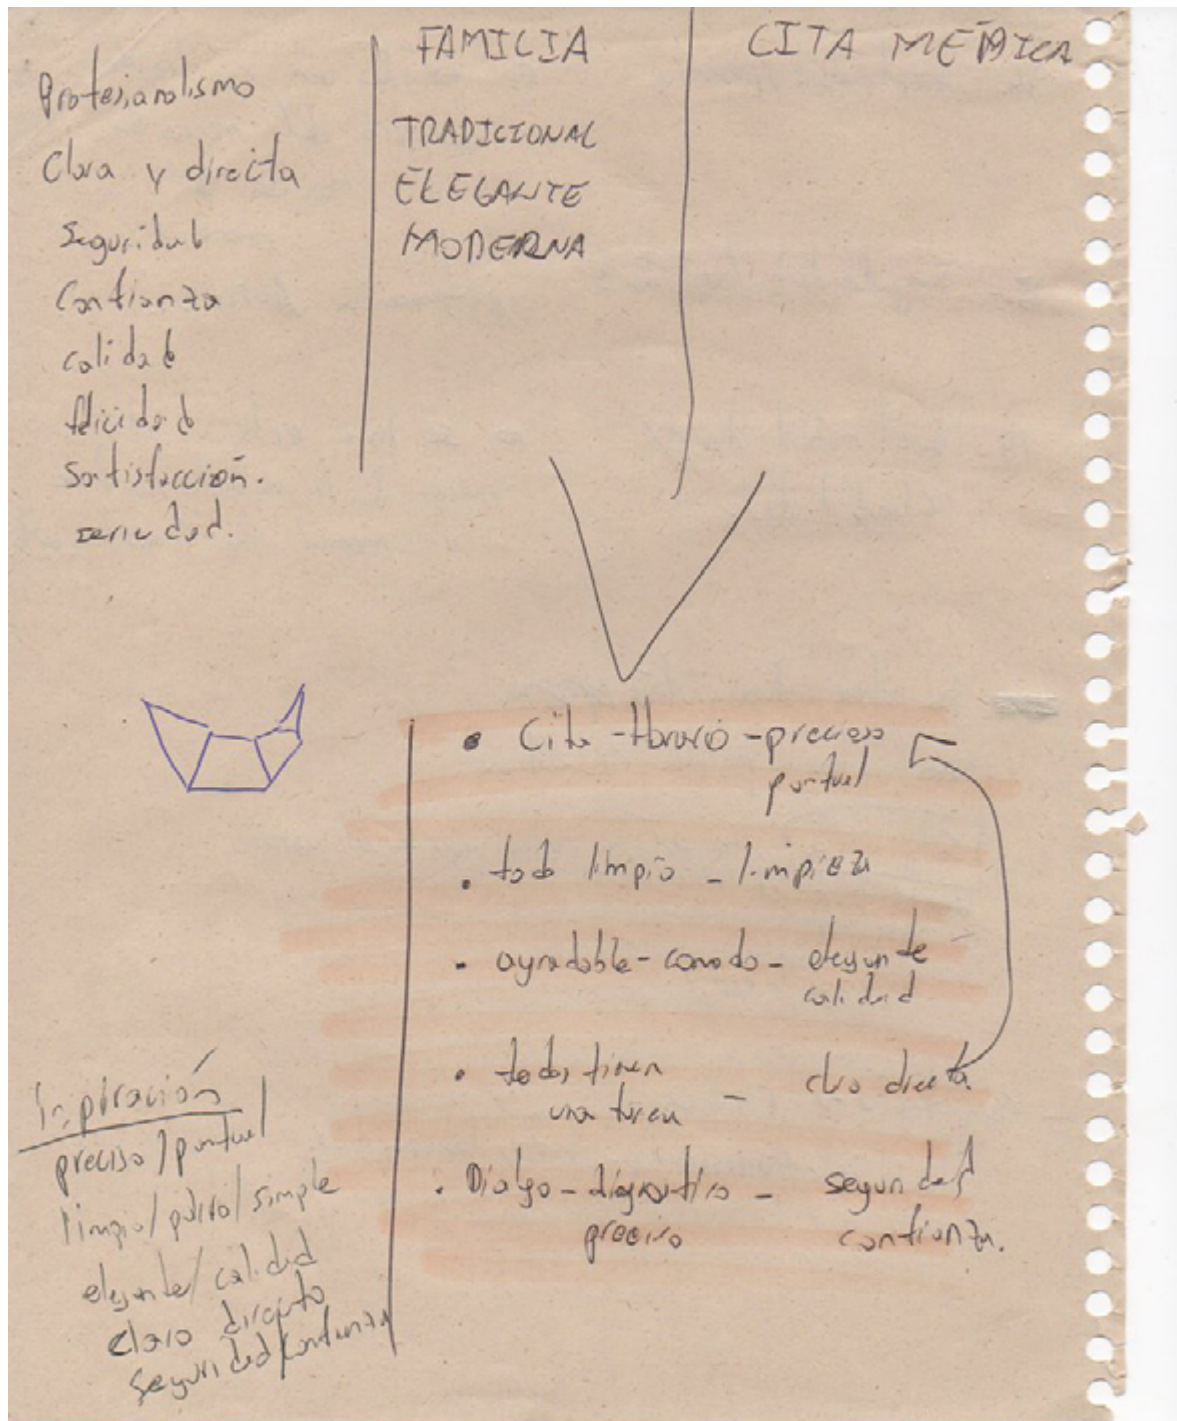 Profesionalismo
Clara y directa
Seguridad
Confianza
calidad
felicidad
Satisfacción.
seriedad.
FAMILIA
TRADICIONAL
ELEGANTE
MODERNA
CITA MÉDICA
• Cita - Horario - preciso
puntual
• todo limpio - limpieza
• agradable - comodo - elegante
calidad
• todos tienen
una tarea - claro directa
• Dialgo - dignostico - seguridad
preciso confianza.
Inpiración
preciso / puntual
limpio / pulcro / simple
elegante / calidad
claro directo
seguridad / confianza